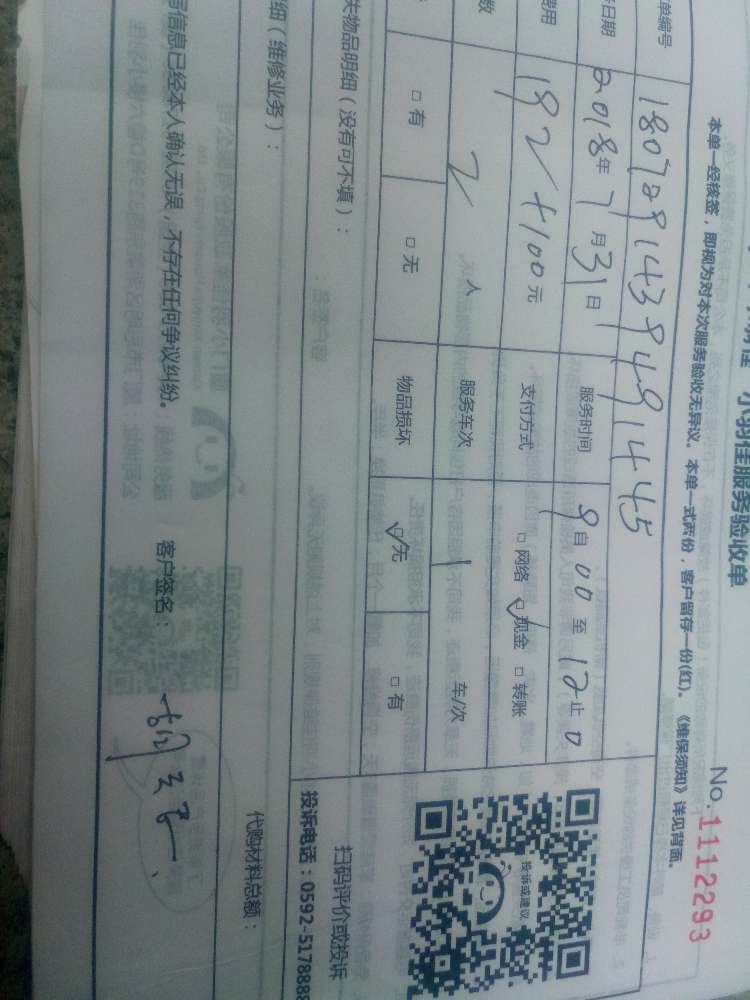 小羽佳服务验收单
No.1112293
本单一经核签，即视为对本次服务验收无异议。本单一式两份，客户留存一份(红)。《维保须知》详见背面。
单编号 180731143949491445
日期 2018年7月31日 服务时间 自9:00至12:00止
费用 192+100元 支付方式 □网络 ☑现金 □转账
数 2人 服务车次 1 车/次
□有 □无 物品损坏 ☑无 □有
失物品明细（没有可不填）：
细（维修业务）：
代购材料总额：
信息已经本人确认无误，不存在任何争议纠纷。 客户签名：
投诉或建议
扫码评价或投诉
投诉电话：0592-5178888